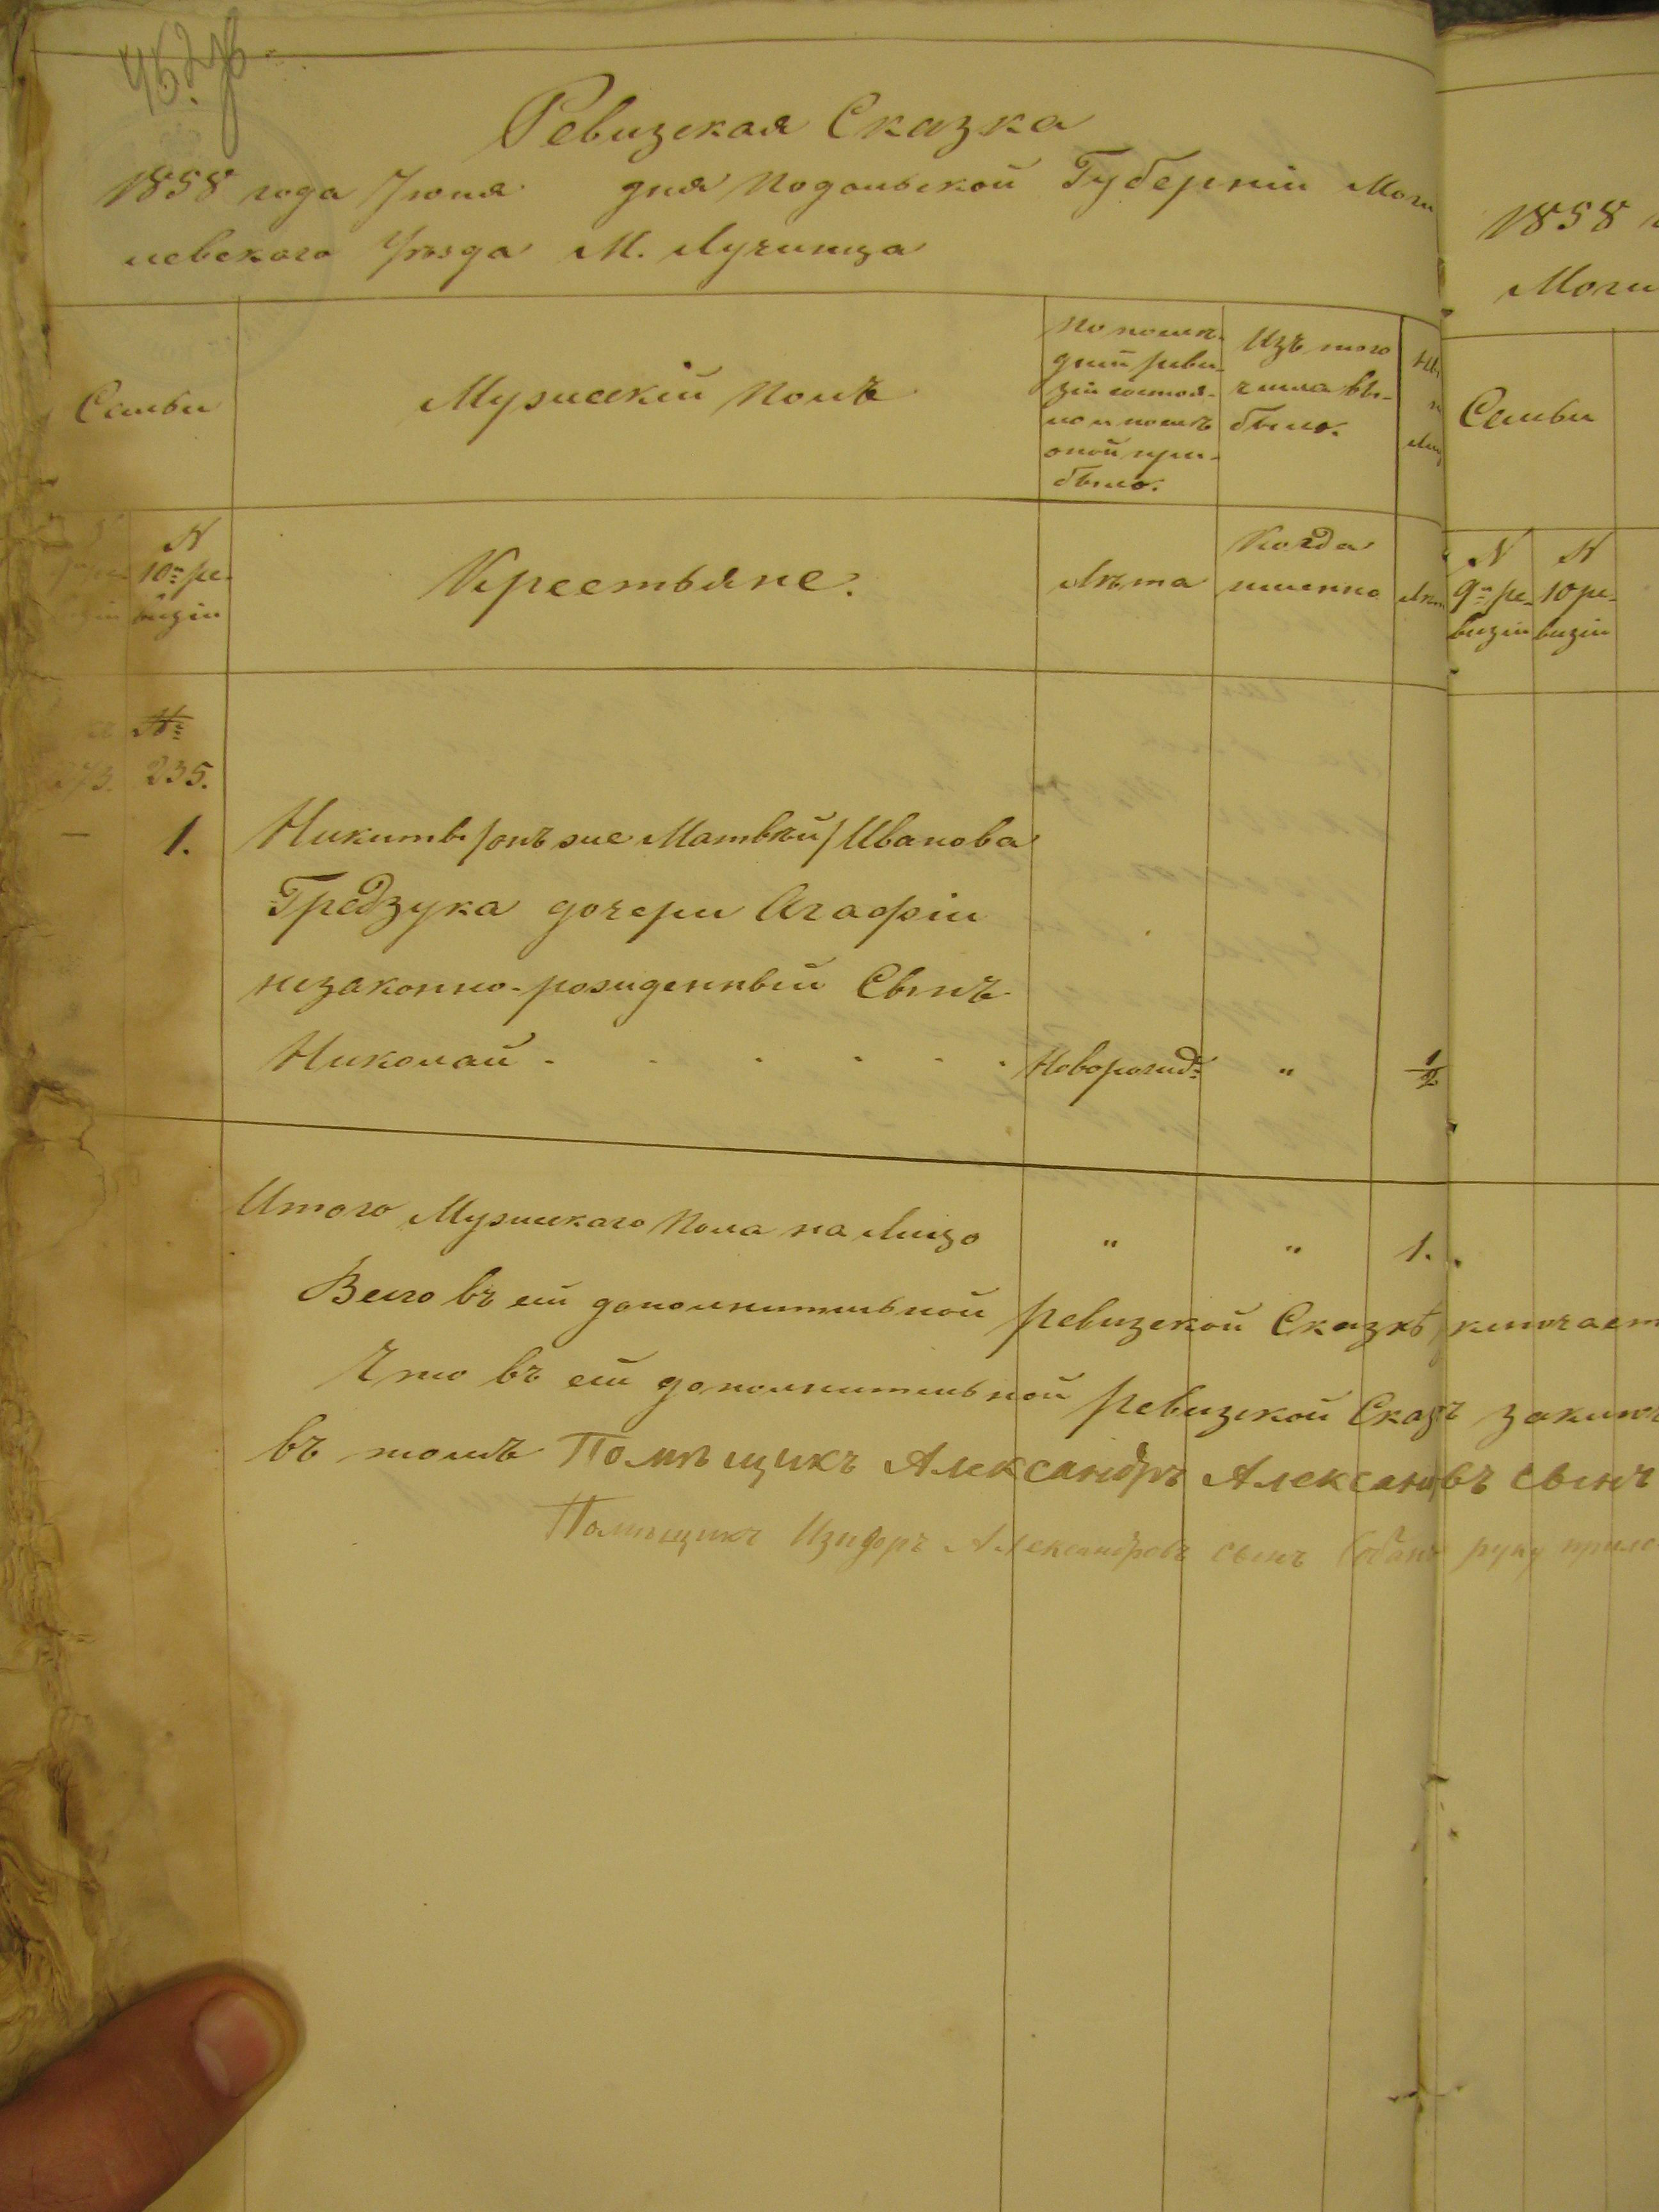 Ревизская Сказка
1858 года Іюня дня Подольской Губерніи Моги
левского Уѣзда М. Лучинца
Семьи
Мужескій Полъ
По послѣ-
дній реви-
зіи состоя-
ло и послѣ
оной при-
было.
Изъ того
числа вы-
было.
N
10й ре-
визіи
Крестьяне.
Лѣта
Когда
именно
Лѣт
№
273. 235.
1.
Никиты /онъ же Матвѣй/ Иванова
Гредзука дочери Агафіи
незаконно-рожденный Сынъ
Николай - - - - - - Новорожд: " 1/2
Итого Мужескаго Пола на Лицо " " 1.
Всего въ сей дополнительной ревизской Сказкѣ ключает
Что въ сей дополнительной ревизской Сказъ заключ
въ томъ Помѣщикъ Александръ Алексановъ сынъ
Помѣщикъ Изидоръ Александровъ сынъ руку прило
1858
Моги
Семьи
N
9й ре-
визіи
N
10 ре-
визіи